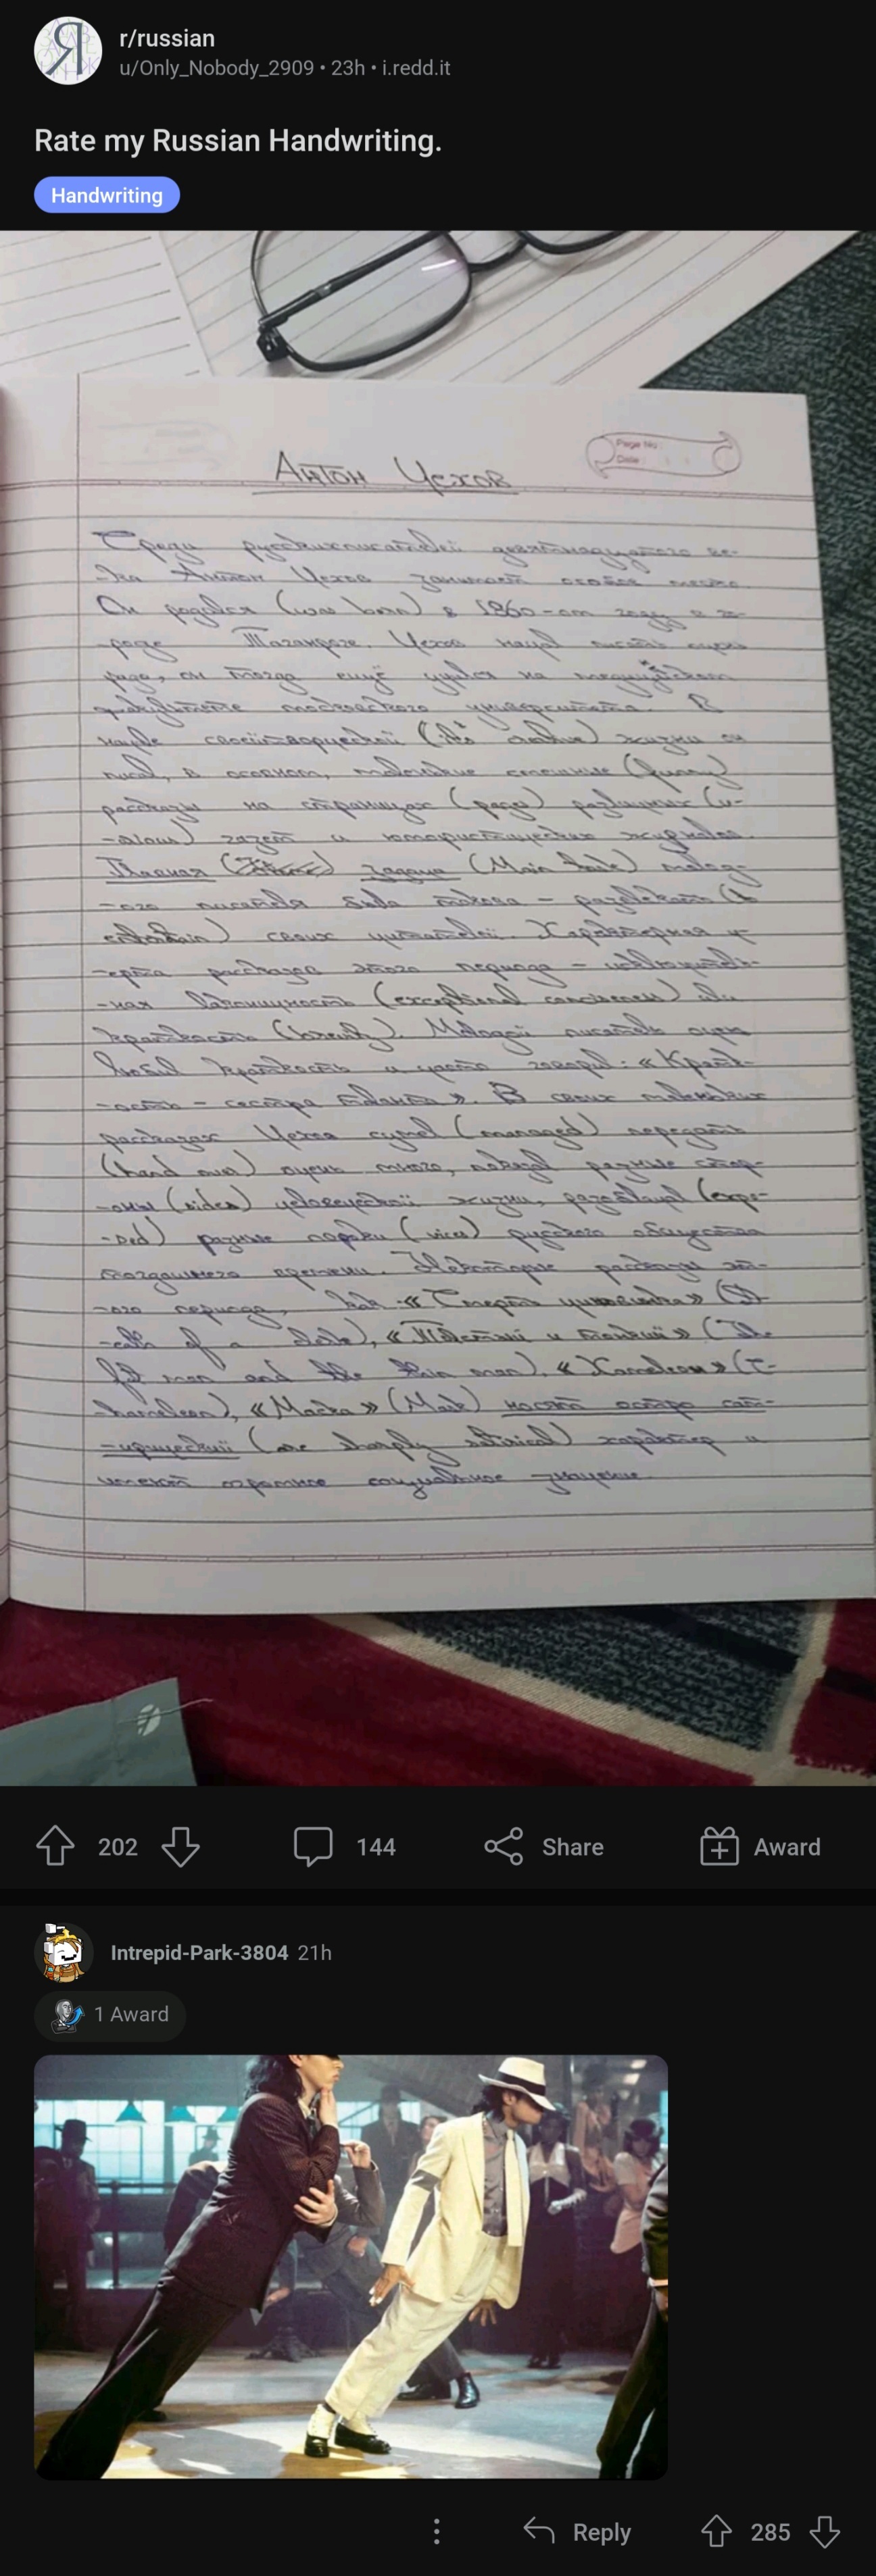 r/russian
u/Only_Nobody_2909 • 23h • i.redd.it
Rate my Russian Handwriting.
Handwriting
Page No :
Date :
Антон Чехов
Среди русских писателей девятнадцатого ве-
-ка Антон Чехов занимает особое место.
Он родился (was born) в 1860-ом году в го-
-роде Таганроге. Чехов начал писать очень
рано, он тогда ещё учился на
факультете московского университета. В
начале своей творческой жизни он
писал, в основном, маленькие смешные (funny)
рассказы на страницах (pages) различных (v-
газет и юмористических журналов.
Главная задача (Main task) молод-
-ого писателя была такова – развлекать (to
entertain) своих читателей. Характерная ч-
-ерта рассказов этого периода – исключитель-
-ная лаконичность (exceptional conciseness) или
краткость (brevity). Молодой писатель очень
любил краткость и часто говорил: «Кратк-
-ость – сестра таланта». В своих маленьких
рассказах Чехов сумел (managed) передать
(hand over) очень много, показал разные стор-
-оны (sides) человеческой жизни, разоблачил (expo-
-sed) разные пороки (vices) русского общества
тогдашнего времени. Некоторые рассказы эт-
-ого периода, как «Смерть чиновника» (De-
-ath of a clerk), «Толстый и тонкий» (The
fat man and the thin man), «Хамелеон» (C-
-hameleon), «Маска» (Mask) носят остро сат-
-ирический (are sharply satirical) характер и
имеют огромное социальное значение.
202
144
Share
Award
Intrepid-Park-3804 21h
1 Award
Reply
285